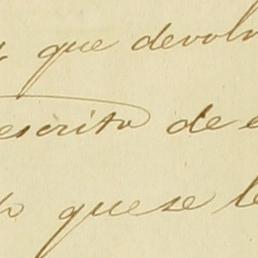 que devolv
escrito de e
que se le